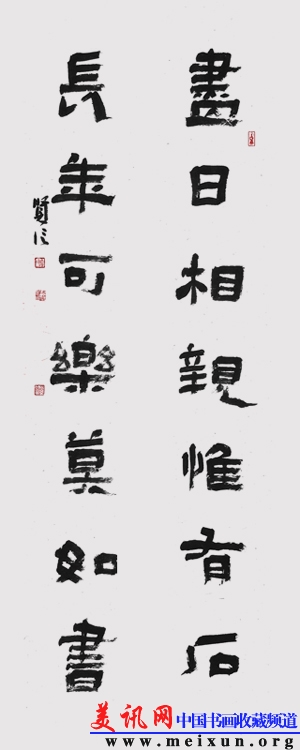 盡日相親惟有石
長年可樂莫如書
賢信
美讯网 中国书画收藏频道
www.meixun.org